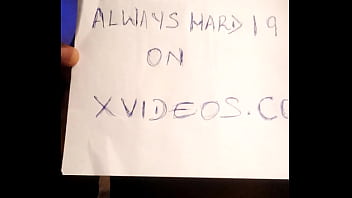 ALWAYS HARD 19
ON
XVIDEOS.C